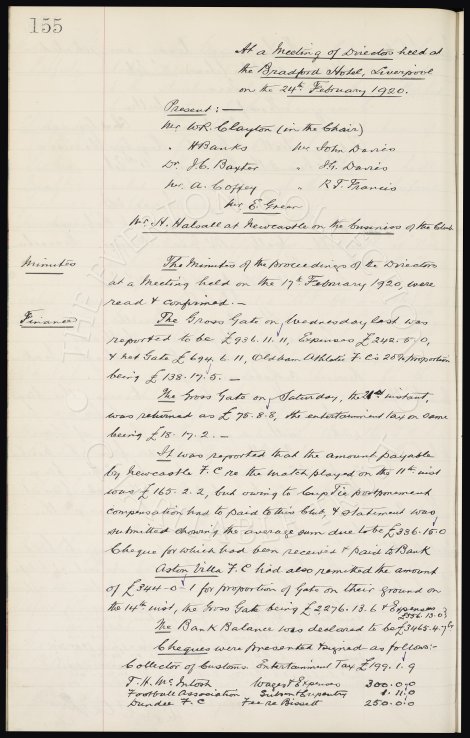 155
At a Meeting of Directors held at
the Bradford Hotel, Liverpool
on the 24th February 1920.
Present:—
Mr W.R. Clayton (in the Chair)
" H Banks Mr John Davies
Dr. J.C. Baxter " J.G. Davies
Mr. A. Coffey " R.F. Francis
Mr E. Green
Mr. H. Halsall at Newcastle on the business of the Club
Minutes The Minutes of the proceedings of the Directors
at a Meeting held on the 17th February 1920, were
read & confirmed.—
Finance The Gross Gate on Wednesday last was
reported to be £936.11.11, Expenses £242.5.0,
& net Gate £694.6.11, Oldham Athletic F.C's proportion
being £138.17.5.—
The Gross Gate on Saturday, the 21st instant,
was returned as £75.8.8, the entertainment tax on same
being £18.17.2.—
It was reported that the amount payable
by Newcastle F.C re the match played on the 11th inst
was £165.2.2, but owing to Cup Tie postponement
compensation had to paid to this Club, & statement was
submitted showing the average sum due to be £336.15.0
Cheque for which had been received & paid to Bank
Aston Villa F.C had also remitted the amount
of £344-0-1 for proportion of Gate on their ground on
the 14th inst, the Gross Gate being £2276.13.6 & Expenses
£556.13.0
The Bank Balance was declared to be £3465.4.7
Cheques were presented & signed as follows:-
Collector of Customs Entertainment Tax £199.1.9
T.H. McIntosh Wages & Expenses 300.0.0
Football Association 1.11.0
Dundee F.C Fee re Bissett 250.0.0